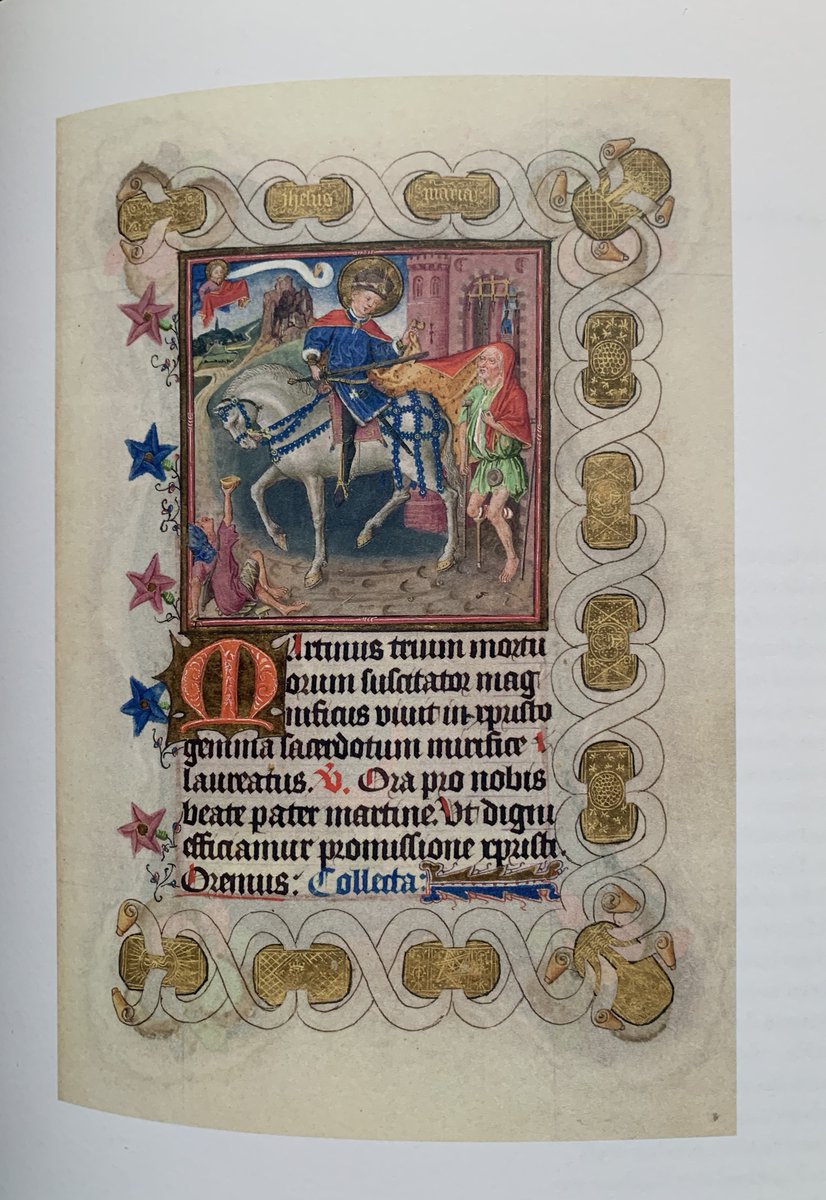 jhesus maria
Martinus trium mortu
orum suscitator mag
nificus viuit in xpristo
gemma sacerdotum mirifice
laureatus. V. Ora pro nobis
beate pater martine. Vt digni
efficiamur promissione xpristi.
Oremus: Collecta: